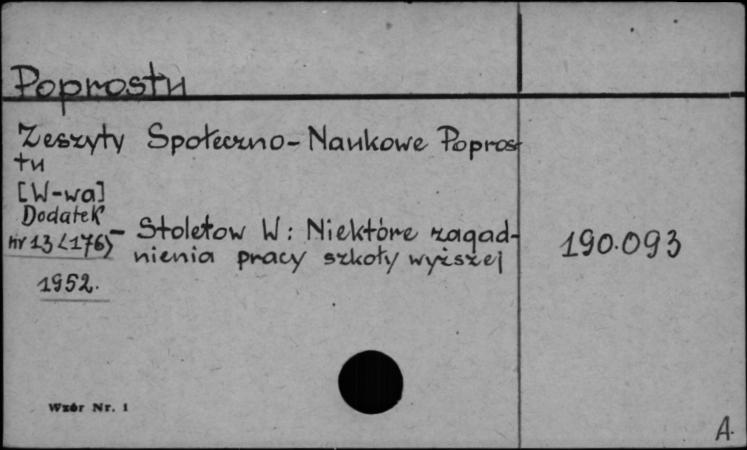 Poprostu
Zeszyty Społeczno-Naukowe Popros-
tu
[W-wa]
Dodatek
nr 13 <176> - Stoletow W: Niektóre zagad-
nienia pracy szkoły wyższej
1952.
190.093
Wzór Nr. 1
A.